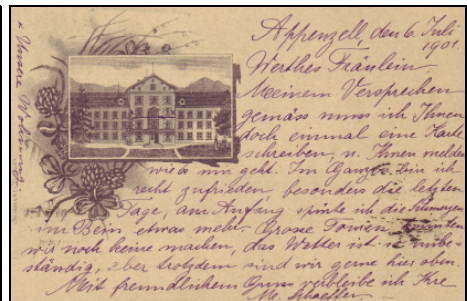 × Unsere Wohnung.
Appenzell, den 6. Juli
1901.
Werthes Fräulein
Meinem Versprechen
gemäss muss ich Ihnen
doch einmal eine Karte
schreiben, u. Ihnen melden
wie es mir geht. Im Ganzen bin ich
recht zufrieden, besonders die letzten
Tage, am Anfang spürte ich die Schmerzen
im Bein etwas mehr. Grosse Touren konnten
wir noch keine machen, das Wetter ist
ständig, aber trotzdem sind wir gerne hier oben.
Mit freundlichem Gruss verbleibe ich Ihre